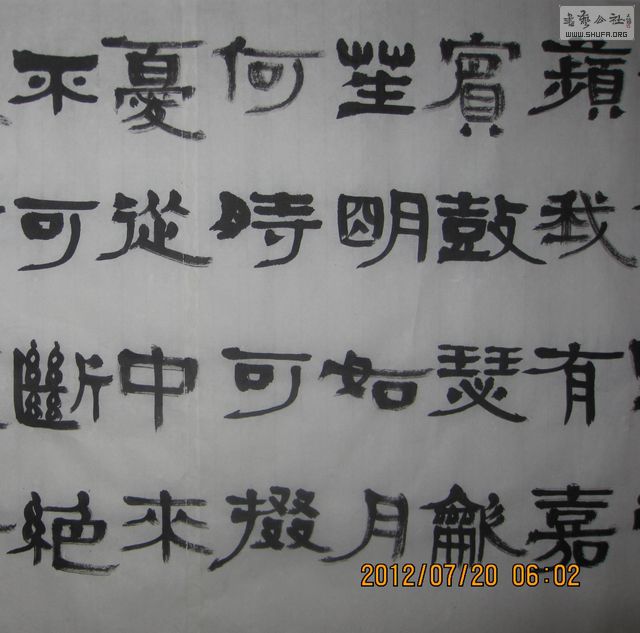 書藝公社
WWW.SHUFA.ORG
蘋我有嘉
賓鼓瑟龡
笙明如月
何時可掇
憂從中來
不可斷絕
2012/07/20 06:02